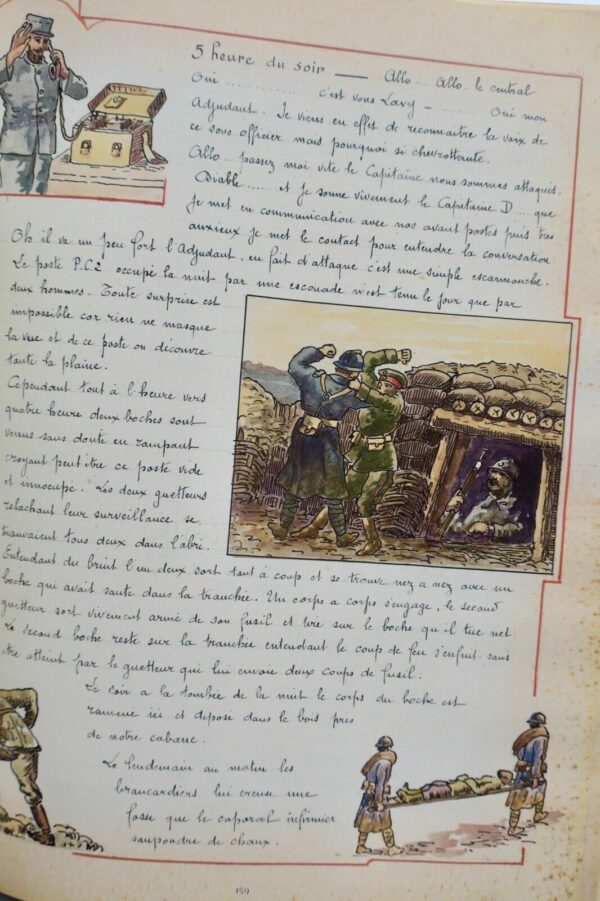 5 heure du soir — Allo... Allo le central
Oui ............ c'est vous Lavy - ...... Oui mon
Adjudant. Je viens en effet de reconnaitre la voix de
ce sous officier mais pourquoi si chevrottante.
Allo.. passez moi vite le Capitaine nous sommes attaqués.
Diable ..... et je sonne vivement le Capitaine D.... que
je met en communication avec nos avant postes puis très
anxieux je met le contact pour entendre la conversation
Oh il va un peu fort l'Adjudant, en fait d'attaque c'est une simple escarmouche.
Le poste P.C2 occupé la nuit par une escouade n'est tenu le jour que par
deux hommes. Toute surprise est
impossible car rien ne masque
la vue et de ce poste on découvre
toute la plaine.
Cependant tout à l'heure vers
quatre heure deux boches sont
venus sans doute en rampant
croyant peut être ce poste vide
et innocupé. Les deux guetteurs
relachant leur surveillance se
trouvaient tous deux dans l'abri.
Entendant du bruit l'un deux sort tout à coup et se trouve nez a nez avec un
boche qui avait sauté dans la tranchée. Un corps a corps s'engage, le second
guetteur sort vivement armé de son fusil et tire sur le boche qu'il tue net.
Le second boche resté sur la tranchée entendant le coup de feu s'enfuit sans
être atteint par le guetteur qui lui envoie deux coups de fusil.
Le soir a la tombée de la nuit le corps du boche est
ramené ici et déposé dans le bois près
de notre cabane.
Le lendemain au matin les
brancardiers lui creuse une
fosse que le caporal infirmier
saupoudre de chaux.
159